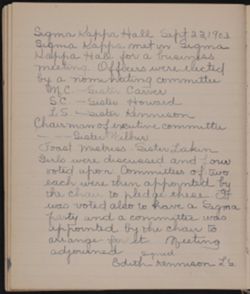 Sigma Kappa Hall Sept 23, 1903
Sigma Kappa met in Sigma
Kappa Hall for a business
meeting. Officers were elected
by a nominating committee
M.C. - Sister Carver
S.C. - Sister Howard
L.S. - Sister Kennison
Chairman of executive committee
- Sister
Toast Mistress - Sister Lakin
Girls were discussed and four
voted upon. Committees of two
each were then appointed by
the chair to pledge these. It
was voted also to have a Sigma
party and a committee was
appointed by the chair to
arrange for it. Meeting
adjourned.
Signed
Edith Kennison L.S.